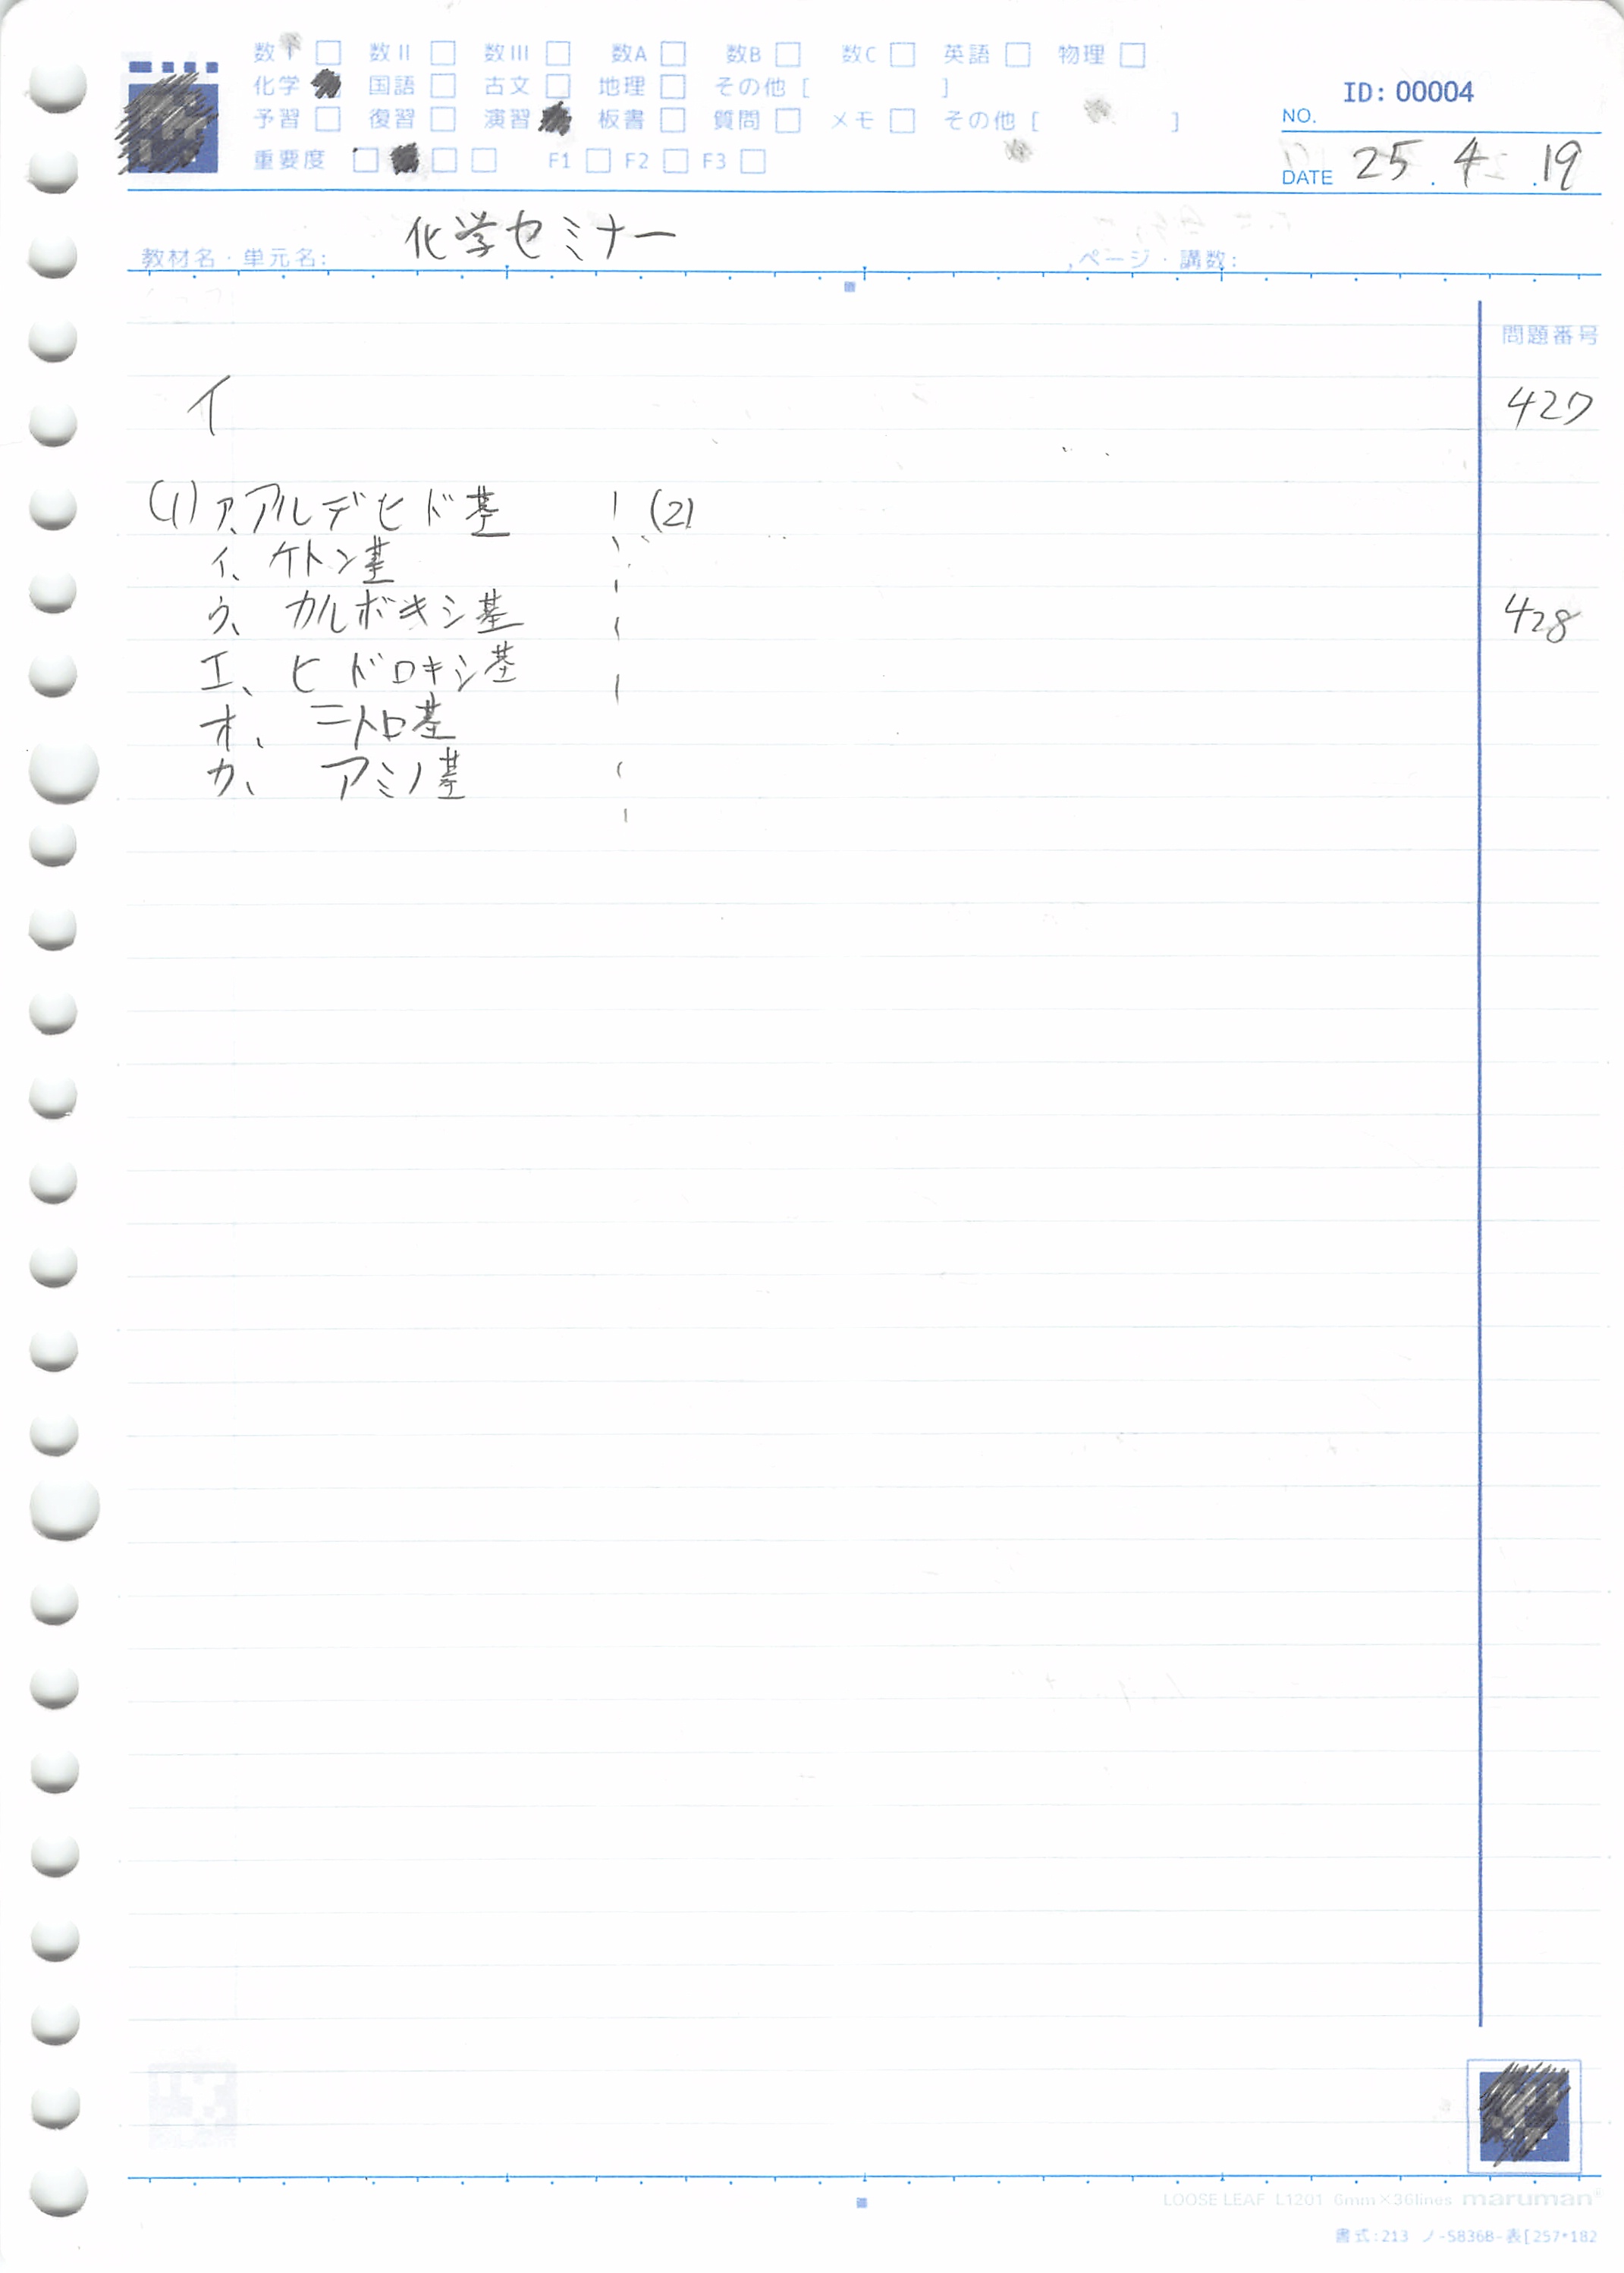 数I □ 数II □ 数III □ 数A □ 数B □ 数C □ 英語 □ 物理 □
化学 国語 □ 古文 □ 地理 □ その他 [ ]
予習 □ 復習 □ 演習 板書 □ 質問 □ メモ □ その他 [ ]
重要度 □ □ □ F1 □ F2 □ F3 □
ID: 00004
NO.
DATE 25 . 4 . 19
教材名・単元名: 化学セミナー ページ・講数:
問題番号
イ 427
(1) ア、アルデヒド基 (2)
イ、ケトン基
ウ、カルボキシ基 428
エ、ヒドロキシ基
オ、ニトロ基
カ、アミノ基
LOOSE LEAF L1201 6mm×36lines maruman
書式:213 ノ-5836B-表[257*182